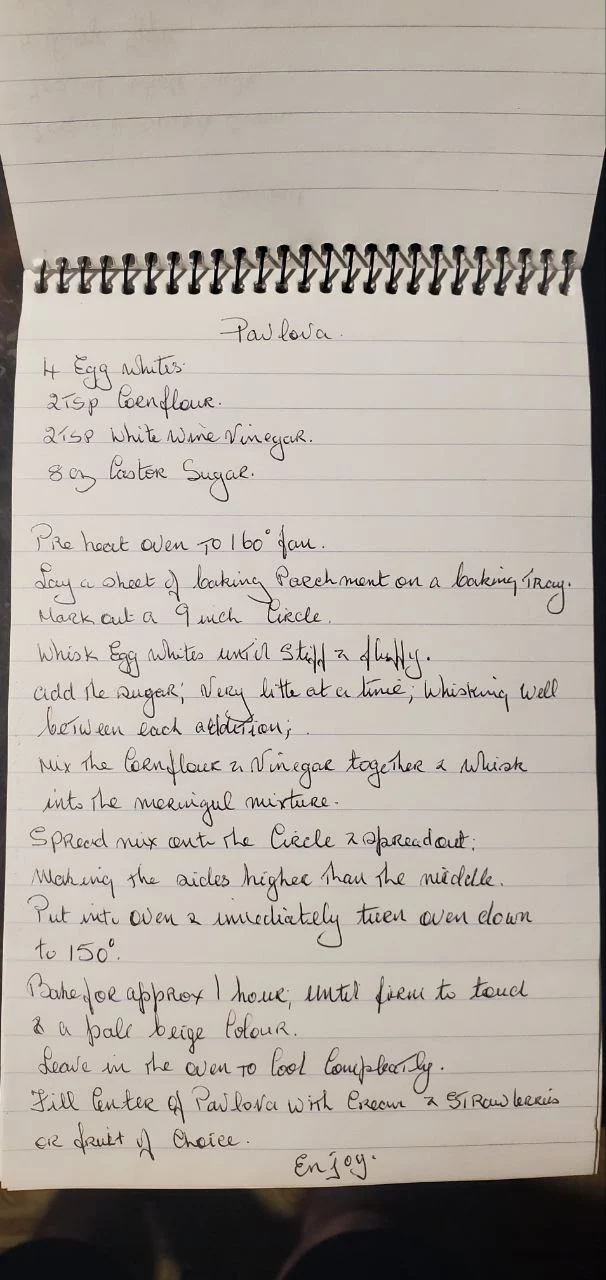 Pavlova.
4 Egg Whites.
2 Tsp Cornflour.
2 Tsp White Wine Vinegar.
8 oz Castor Sugar.
Pre heat oven To 160° fan.
Lay a sheet of baking Parchment on a baking Tray.
Mark out a 9 inch Circle.
Whisk Egg Whites until Stiff & fluffy.
add the sugar; Very litte at a time; Whisking Well
between each addition;
Mix The Cornflour & Vinegar together & Whisk
into the meringue mixture.
Spread mix onto the Circle & spread out;
Making The sides higher than the middle.
Put into oven & immediately turn oven down
to 150°.
Bake for approx 1 hour; until firm to touch
& a pale beige Colour.
Leave in the oven To Cool Completly.
Fill Center of Pavlova with Cream & Strawberries
or fruit of Choice.
Enjoy.